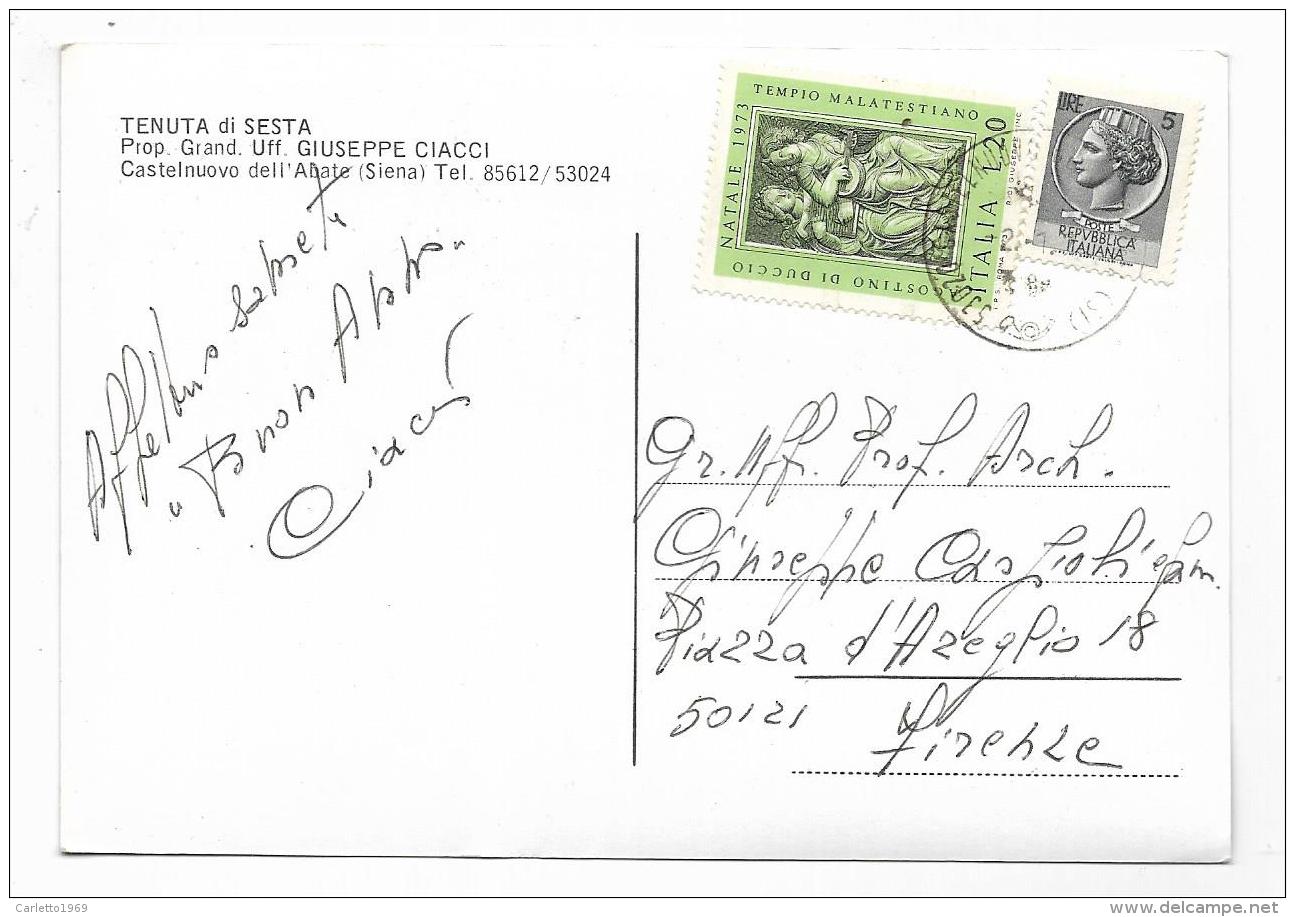 TENUTA di SESTA
Prop. Grand. Uff. GIUSEPPE CIACCI
Castelnuovo dell'Abate (Siena) Tel. 85612/53024
Buon
Ciacci
TEMPIO MALATESTIANO
NATALE 1973
AGOSTINO DI DUCCIO
ITALIA L.20
I.P.S. ROMA 1973
LIRE 5
POSTE
REPVBBLICA
ITALIANA
(SI)
Gr. Uff. Prof. Arch.
Giuseppe
Piazza d'Azeglio 18
50121
Firenze
Carletto1969
delcampe.net